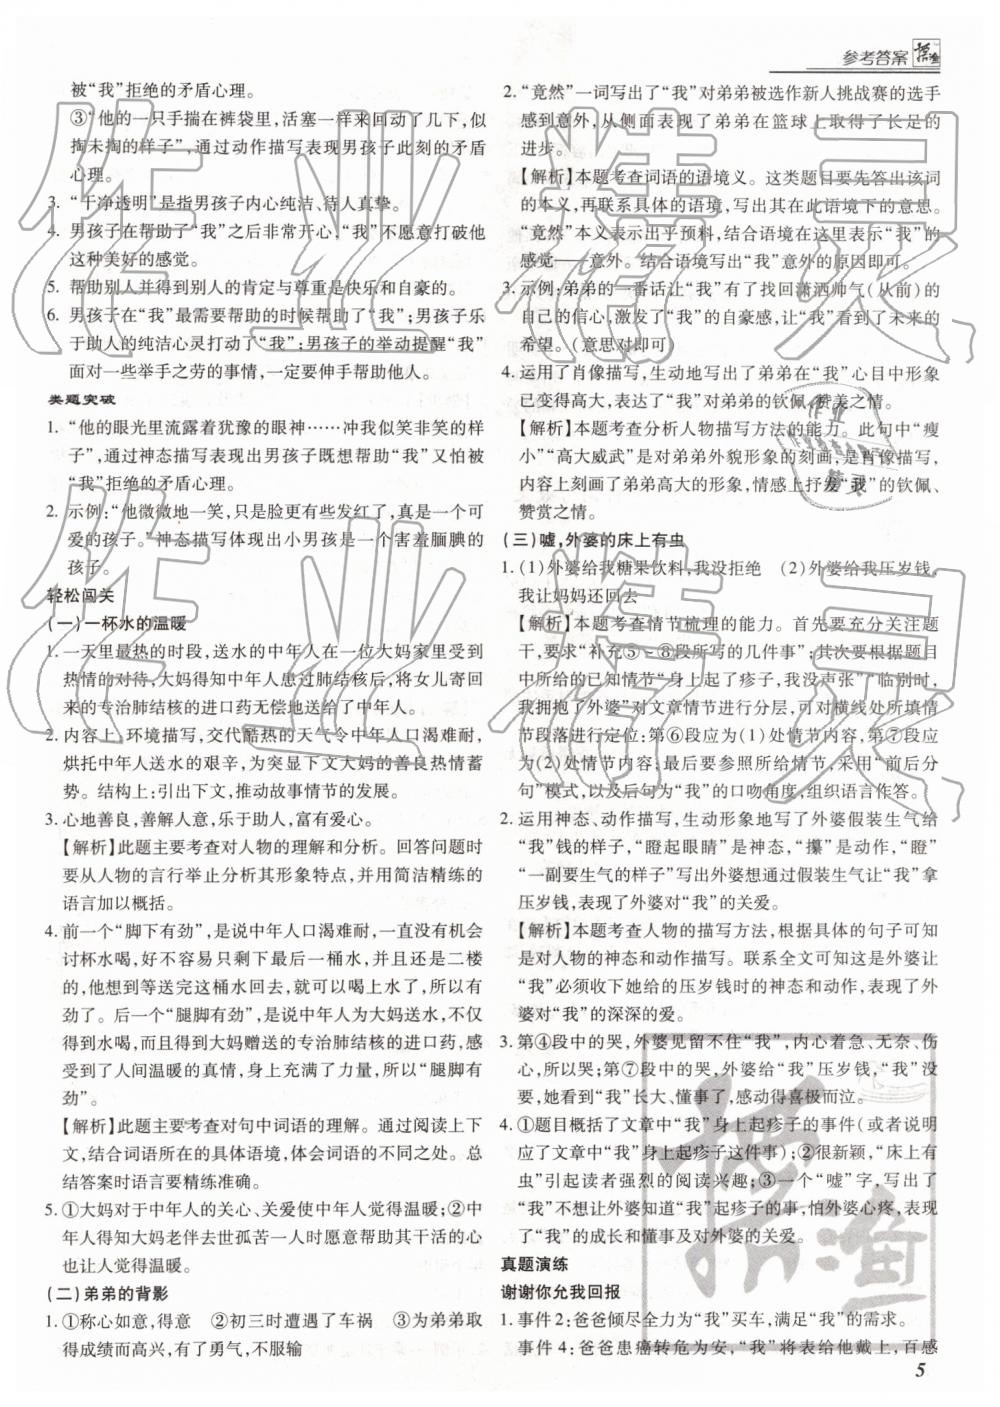 参考答案
被“我”拒绝的矛盾心理。
③“他的一只手揣在裤袋里,活塞一样来回动了几下,似
掏未掏的样子”,通过动作描写表现男孩子此刻的矛盾
心理。
3. “干净透明”是指男孩子内心纯洁、待人真挚。
4. 男孩子在帮助了“我”之后非常开心,“我”不愿意打破他
这种美好的感觉。
5. 帮助别人并得到别人的肯定与尊重是快乐和自豪的。
6. 男孩子在“我”最需要帮助的时候帮助了“我”;男孩子乐
于助人的纯洁心灵打动了“我”;男孩子的举动提醒“我”
面对一些举手之劳的事情,一定要伸手帮助他人。
类题突破
1. “他的眼光里流露着犹豫的眼神……冲我似笑非笑的样
子”,通过神态描写表现出男孩子既想帮助“我”又怕被
“我”拒绝的矛盾心理。
2. 示例:“他微微地一笑,只是脸更有些发红了,真是一个可
爱的孩子。”神态描写体现出小男孩是一个害羞腼腆的
孩子。
轻松闯关
(一)一杯水的温暖
1. 一天里最热的时段,送水的中年人在一位大妈家里受到
热情的对待,大妈得知中年人患过肺结核后,将女儿寄回
来的专治肺结核的进口药无偿地送给了中年人。
2. 内容上:环境描写,交代酷热的天气令中年人口渴难耐,
烘托中年人送水的艰辛,为突显下文大妈的善良热情蓄
势。结构上:引出下文,推动故事情节的发展。
3. 心地善良,善解人意,乐于助人,富有爱心。
【解析】此题主要考查对人物的理解和分析。回答问题时
要从人物的言行举止分析其形象特点,并用简洁精练的
语言加以概括。
4. 前一个“脚下有劲”,是说中年人口渴难耐,一直没有机会
讨杯水喝,好不容易只剩下最后一桶水,并且还是二楼
的,他想到等送完这桶水回去,就可以喝到水了,所以有
劲了。后一个“腿脚有劲”,是说中年人为大妈送水,不仅
得到水喝,而且得到大妈赠送的专治肺结核的进口药,感
受到了人间温暖的真情,身上充满了力量,所以“腿脚有
劲”。
【解析】此题主要考查对句中词语的理解。通过阅读上下
文,结合词语所在的具体语境,体会词语的不同之处。总
结答案时语言要精练准确。
5. ①大妈对于中年人的关心、关爱使中年人觉得温暖;②中
年人得知大妈老伴去世孤苦一人时愿意帮助其干活的心
也让人觉得温暖。
(二)弟弟的背影
1. ①称心如意,得意 ②初三时遭遇了车祸 ③为弟弟取
得成绩而高兴,有了勇气,不服输
2. “竟然”一词写出了“我”对弟弟被选作新人挑战赛的选手
感到意外,从侧面表现了弟弟在篮球上取得了长足的
进步。
【解析】本题考查词语的语境义。这类题目要先答出该词
的本义,再联系具体的语境,写出其在此语境下的意思。
“竟然”本义表示出乎预料,结合语境在这里表示“我”的
感觉——意外。结合语境写出“我”意外的原因即可。
3. 示例:弟弟的一番话让“我”有了找回潇洒帅气(从前)的
自己的信心,激发了“我”的自豪感,让“我”看到了未来的
希望。(意思对即可)
4. 运用了肖像描写,生动地写出了弟弟在“我”心目中形象
已变得高大,表达了“我”对弟弟的钦佩、赞美之情。
【解析】本题考查分析人物描写方法的能力。此句中“瘦
小”“高大威武”是对弟弟外貌形象的刻画,是肖像描写,
内容上刻画了弟弟高大的形象,情感上抒发“我”的钦佩、
赞赏之情。
(三)嘘,外婆的床上有虫
1. (1)外婆给我糖果饮料,我没拒绝 (2)外婆给我压岁钱,
我让妈妈还回去
【解析】本题考查情节梳理的能力。首先要充分关注题
干,要求“补充⑤~⑧段所写的几件事”;其次要根据题目
中所给的已知情节“身上起了疹子,我没声张”“临别时,
我拥抱了外婆”对文章情节进行分层,可对横线处所填情
节段落进行定位:第⑥段应为(1)处情节内容,第⑦段应
为(2)处情节内容,再要参照所给情节,采用“前后分
句”模式,以及后句为“我”的口吻角度,组织语言作答。
2. 运用神态、动作描写,生动形象地写了外婆假装生气给
“我”钱的样子,“瞪起眼睛”是神态,“攥”是动作,“瞪”
“一副要生气的样子”写出外婆想通过假装生气让“我”拿
压岁钱,表现了外婆对“我”的关爱。
【解析】本题考查人物的描写方法,根据具体的句子可知
是对人物的神态和动作描写。联系全文可知这是外婆让
“我”必须收下她给的压岁钱时的神态和动作,表现了外
婆对“我”的深深的爱。
3. 第④段中的哭,外婆见留不住“我”,内心着急、无奈、伤
心,所以哭;第⑦段中的哭,外婆给“我”压岁钱,“我”没有
要,外婆看到“我”长大、懂事了,感动得喜极而泣。
4. ①题目概括了文章中“我”身上起疹子的事件(或者说明
写了文章中“我”身上起疹子这件事);②很新颖,“床上有
虫”引起读者强烈的阅读兴趣;③一个“嘘”字,写出了
“我”不想让外婆知道“我”起疹子的事,怕外婆心疼,表现
了“我”的成长和懂事,及对外婆的关爱。
真题演练
谢谢你允我回报
1. 事件2:爸爸倾尽全力为“我”买车,满足“我”的需求。
事件4:爸爸患癌转危为安,“我”将表给他戴上,百感
5